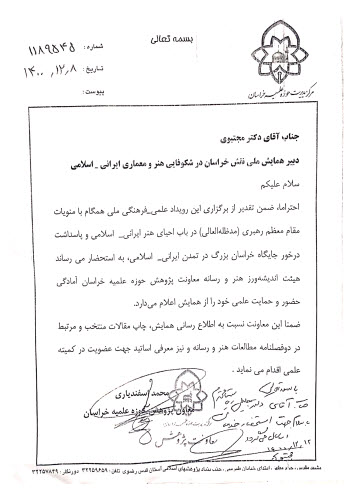 بسمه تعالی
شماره: ۱۱۸۹۵۴۵
تاریخ: ۱۴۰۰,۱۲,۸
پیوست:
مرکز مدیریت حوزه علمیه خراسان
جناب آقای دکتر مجتبوی
دبیر همایش ملی نقش خراسان در شکوفایی هنر و معماری ایرانی _ اسلامی
سلام علیکم
احتراما، ضمن تقدیر از برگزاری این رویداد علمی_فرهنگی ملی همگام با منویات
مقام معظم رهبری (مدظله‌العالی) در باب احیای هنر ایرانی_ اسلامی و پاسداشت
درخور جایگاه خراسان بزرگ در تمدن ایرانی_ اسلامی، به استحضار می رساند
هیئت اندیشه‌ورز هنر و رسانه معاونت پژوهش حوزه علمیه خراسان آمادگی
حضور و حمایت علمی خود را از همایش اعلام می‌دارد.
ضمنا این معاونت نسبت به اطلاع رسانی همایش، چاپ مقالات منتخب و مرتبط
در دوفصلنامه مطالعات هنر و رسانه و نیز معرفی اساتید جهت عضویت در کمیته
علمی اقدام می نماید.
محمد اسفندیاری
معاون پژوهش حوزه علمیه خراسان
معاونت پژوهش